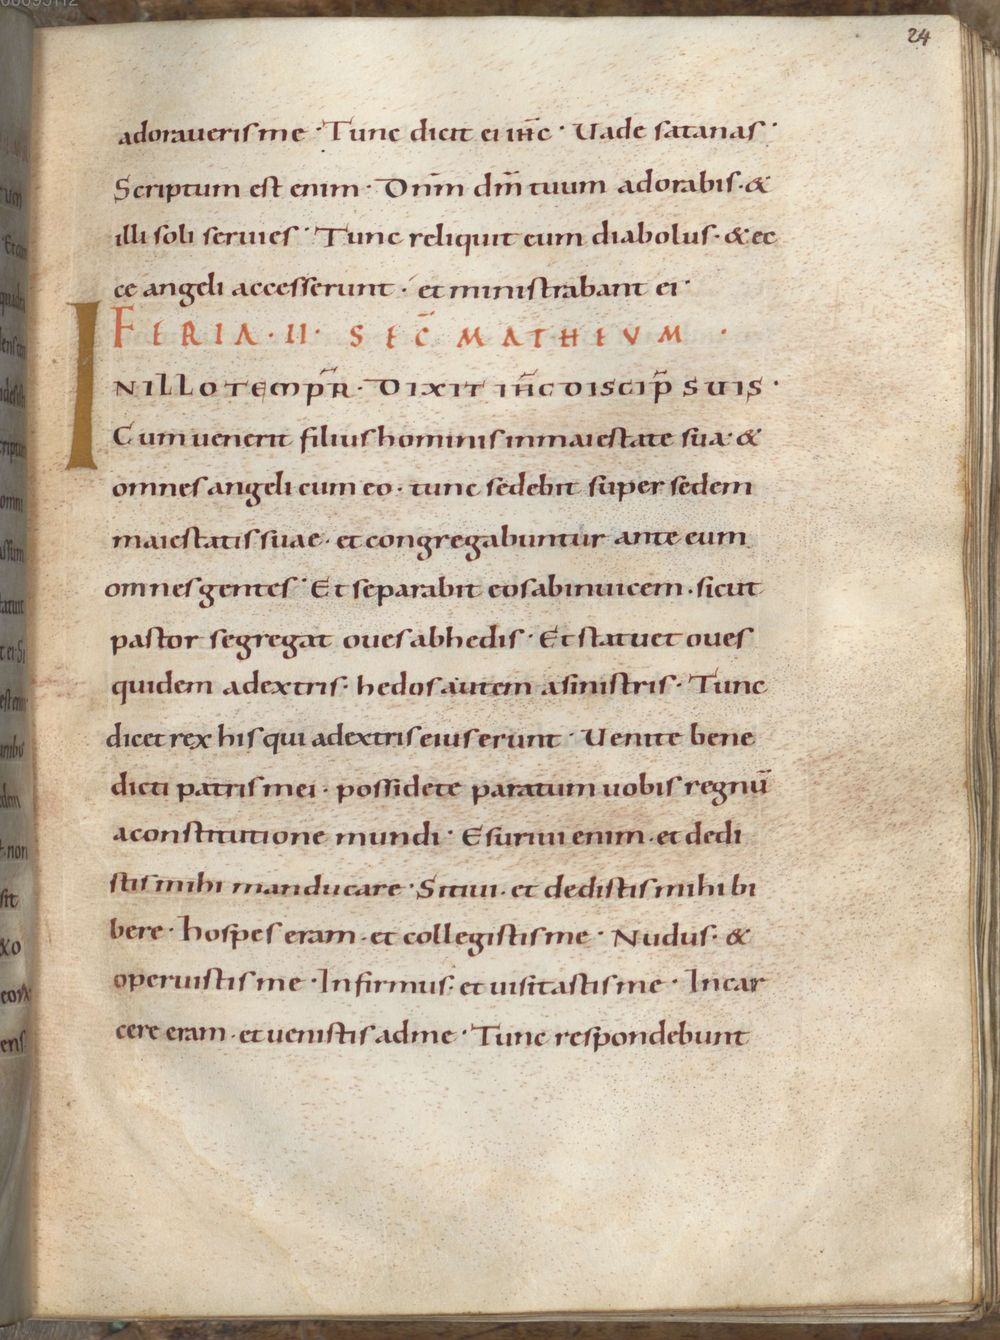 24
adoraueris me · Tunc dicit ei ihc̄ · Uade satanas ·
Scriptum est enim · Dnm̄ dm̄ tuum adorabis · &
illi soli seruies · Tunc reliquit eum diabolus · & ec
ce angeli accesserunt · et ministrabant ei ·
FERIA · II · SEC̄ MATHEUM ·
IN ILLO TEMPR̄ · DIXIT ihc̄ DISCIP̄ SUIS ·
Cum uenerit filius hominis in maiestate sua · &
omnes angeli cum eo · tunc sedebit super sedem
maiestatis suae · et congregabuntur ante eum
omnes gentes · Et separabit eos abinuicem · sicut
pastor segregat oues ab hedis · Et statuet oues
quidem adextris · hedos autem asinistris · Tunc
dicet rex his qui adextris eius erunt · Uenite bene
dicti patris mei · possidete paratum uobis regnū
aconstitutione mundi · Esuriui enim · et dedi
stis mihi manducare · Sitiui · et dedistis mihi bi
bere · hospes eram · et collegistis me · Nudus · &
operuistis me · Infirmus · et uisitastis me · Incar
cere eram · et uenistis adme · Tunc respondebunt